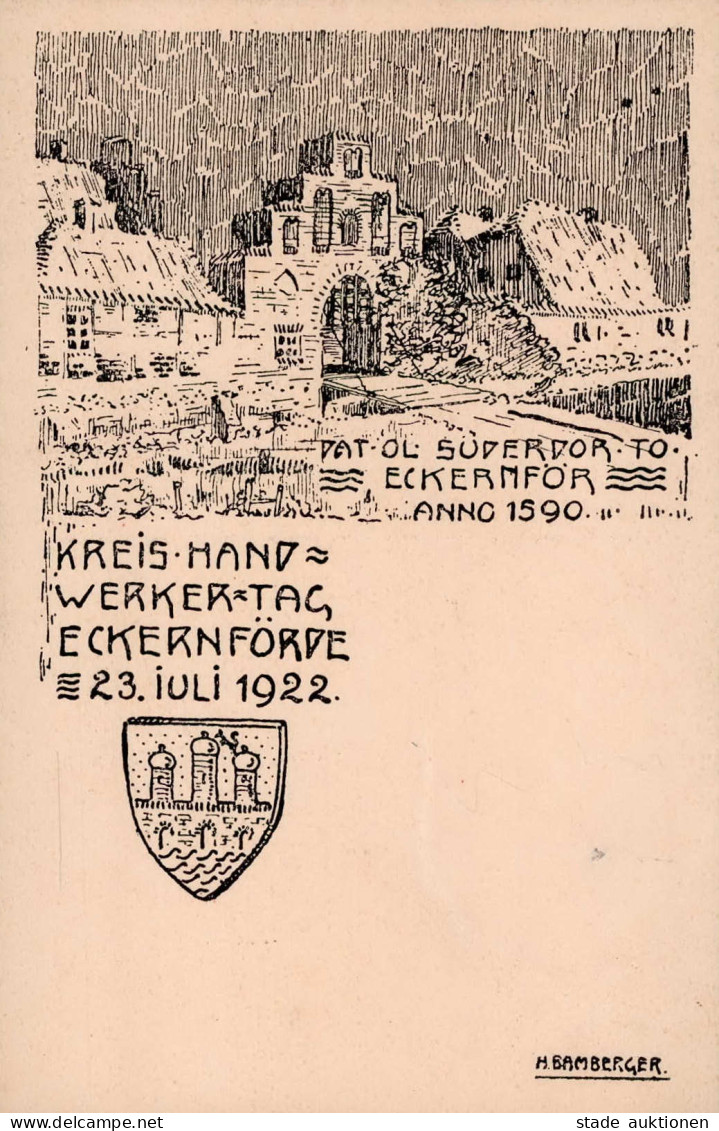 DAT·OL·SÜDERDOR·TO·
ECKERNFÖR
ANNO 1590.
KREIS·HAND=
WERKER=TAG
ECKERNFÖRDE
23. JULI 1922.
H. BAMBERGER.
stade auktionen